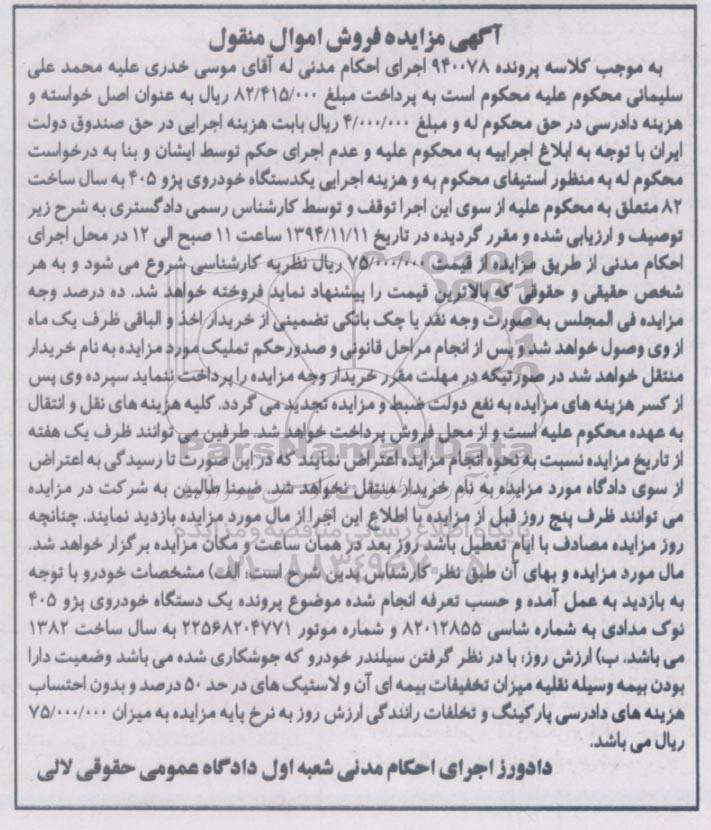 آگهی مزایده فروش اموال منقول
به موجب کلاسه پرونده ۹۴۰۰۷۸ اجرای احکام مدنی له آقای موسی خدری علیه محمد علی
سلیمانی محکوم علیه محکوم است به پرداخت مبلغ ۸۲/۴۱۵/۰۰۰ ریال به عنوان اصل خواسته و
هزینه دادرسی در حق محکوم له و مبلغ ۴/۰۰۰/۰۰۰ ریال بابت هزینه اجرایی در حق صندوق دولت
ایران با توجه به ابلاغ اجراییه به محکوم علیه و عدم اجرای حکم توسط ایشان و بنا به درخواست
محکوم له به منظور استیفای محکوم به و هزینه اجرایی یکدستگاه خودروی پژو ۴۰۵ به سال ساخت
۸۲ متعلق به محکوم علیه از سوی این اجرا توقف و توسط کارشناس رسمی دادگستری به شرح زیر
توصیف و ارزیابی شده و مقرر گردیده در تاریخ ۱۳۹۴/۱۱/۱۱ ساعت ۱۱ صبح الی ۱۲ در محل اجرای
احکام مدنی از طریق مزایده از قیمت ۷۵/۰۰۰/۰۰۰ ریال نظریه کارشناسی شروع می شود و به هر
شخص حقیقی و حقوقی که بالاترین قیمت را پیشنهاد نماید فروخته خواهد شد. ده درصد وجه
مزایده فی المجلس به صورت وجه نقد یا چک بانکی تضمینی از خریدار اخذ و الباقی ظرف یک ماه
از وی وصول خواهد شد و پس از انجام مراحل قانونی و صدور حکم تملیک مورد مزایده به نام خریدار
منتقل خواهد شد در صورتیکه در مهلت مقرر خریدار وجه مزایده را پرداخت ننماید سپرده وی پس
از کسر هزینه های مزایده به نفع دولت ضبط و مزایده تجدید می گردد. کلیه هزینه های نقل و انتقال
به عهده محکوم علیه است و از محل فروش پرداخت خواهد شد. طرفین می توانند ظرف یک هفته
از تاریخ مزایده نسبت به نحوه انجام مزایده اعتراض نمایند که در این صورت تا رسیدگی به اعتراض
از سوی دادگاه مورد مزایده به نام خریدار منتقل نخواهد شد. ضمنا طالبین به شرکت در مزایده
می توانند ظرف پنج روز قبل از مزایده با اطلاع این اجرا از مال مورد مزایده بازدید نمایند. چنانچه
روز مزایده مصادف با ایام تعطیل باشد روز بعد در همان ساعت و مکان مزایده برگزار خواهد شد.
مال مورد مزایده و بهای آن طبق نظر کارشناس بدین شرح است: الف) مشخصات خودرو با توجه
به بازدید به عمل آمده و حسب تعرفه انجام شده موضوع پرونده یک دستگاه خودروی پژو ۴۰۵
نوک مدادی به شماره شاسی ۸۲۰۱۲۸۵۵ و شماره موتور ۲۲۵۶۸۲۰۴۷۷۱ به سال ساخت ۱۳۸۲
می باشد. ب) ارزش روز: با در نظر گرفتن سیلندر خودرو که جوشکاری شده می باشد وضعیت دارا
بودن بیمه وسیله نقلیه میزان تخفیفات بیمه ای آن و لاستیک های در حد ۵۰ درصد و بدون احتساب
هزینه های دادرسی پارکینگ و تخلفات رانندگی ارزش روز به نرخ پایه مزایده به میزان ۷۵/۰۰۰/۰۰۰
ریال می باشد.
دادورز اجرای احکام مدنی شعبه اول دادگاه عمومی حقوقی لالی
ParsNamadData
پایگاه اطلاع رسانی مناقصه و مزایده